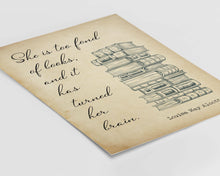 She is too fond
of books,
and it
has
turned
her
brain.
Louisa May Alcott